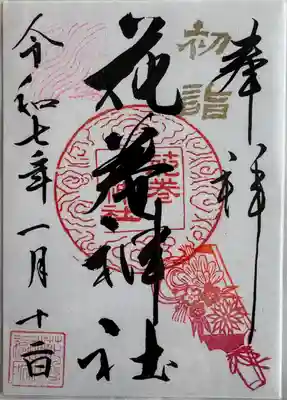 奉拝
初詣
花巻神社
令和七年一月十二日